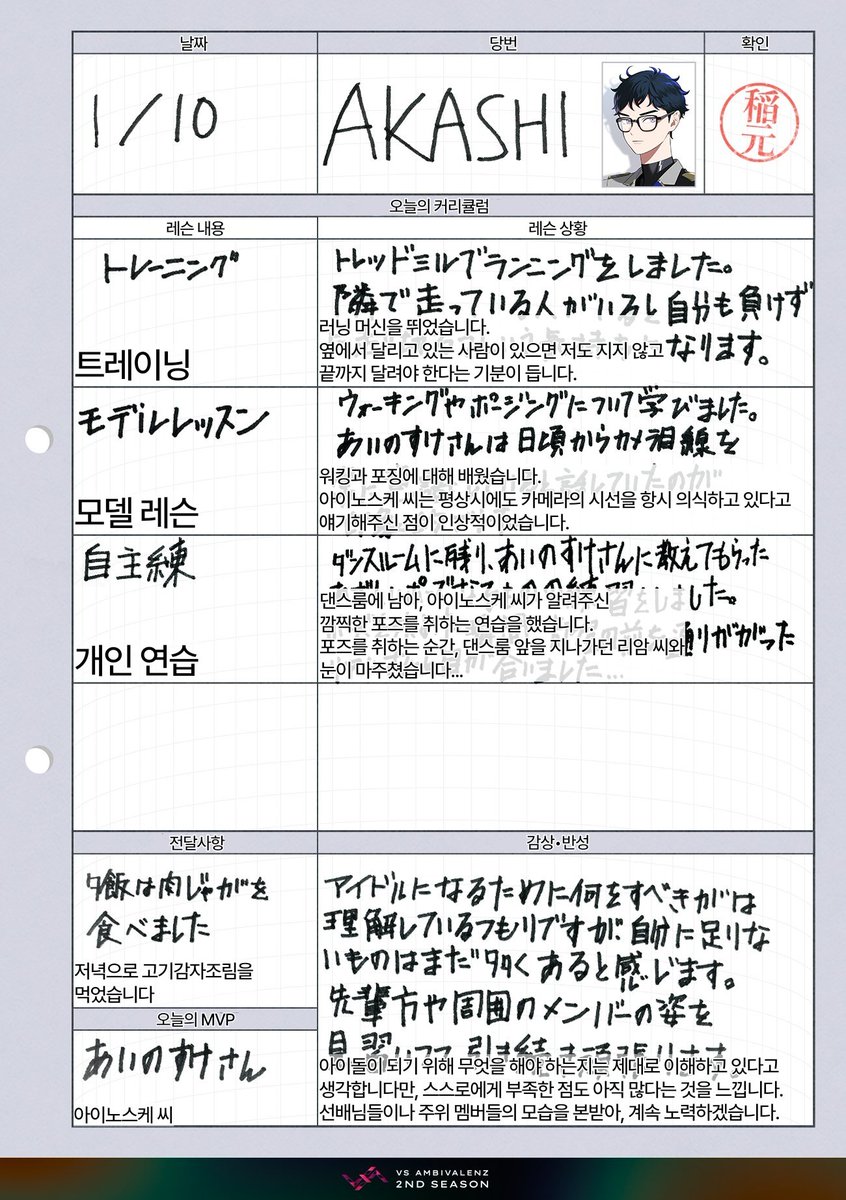 날짜
당번
확인
1/10
AKASHI
稲元
오늘의 커리큘럼
레슨 내용
레슨 상황
トレーニング
트레이닝
トレッドミルでランニングをしました。
隣で走っている人がいると自分も負けず
なります。
러닝 머신을 뛰었습니다.
옆에서 달리고 있는 사람이 있으면 저도 지지 않고
끝까지 달려야 한다는 기분이 듭니다.
モデルレッスン
모델 레슨
ウォーキングやポージングについて学びました。
あいのすけさんは日頃からカメラ目線を
話していたのが
워킹과 포징에 대해 배웠습니다.
아이노스케 씨는 평상시에도 카메라의 시선을 항시 의식하고 있다고
얘기해주신 점이 인상적이었습니다.
自主練
개인 연습
ダンスルームに残り、あいのすけさんに教えてもらった
しました。
通りがかった
合いました…
댄스룸에 남아, 아이노스케 씨가 알려주신
깜찍한 포즈를 취하는 연습을 했습니다.
포즈를 취하는 순간, 댄스룸 앞을 지나가던 리암 씨와
눈이 마주쳤습니다...
전달사항
夕飯は肉じゃがを
食べました
저녁으로 고기감자조림을
먹었습니다
오늘의 MVP
あいのすけさん
아이노스케 씨
감상•반성
アイドルになるために何をすべきかは
理解しているつもりですが自分に足りな
いものはまだ多くあると感じます。
先輩方や周囲のメンバーの姿を
見習いつつ引き続き頑張ります。
아이돌이 되기 위해 무엇을 해야 하는지는 제대로 이해하고 있다고
생각합니다만, 스스로에게 부족한 점도 아직 많다는 것을 느낍니다.
선배님들이나 주위 멤버들의 모습을 본받아, 계속 노력하겠습니다.
VS AMBIVALENZ
2ND SEASON